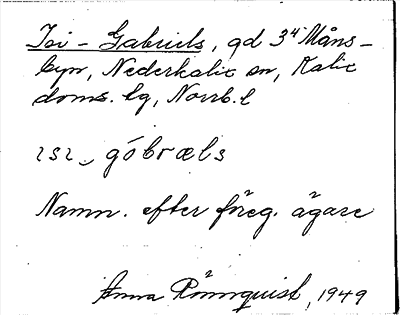 Isi - Gabriels, gd 3⁴ Måns-
byn, Nederkalix sn, Kalix
doms. lg, Norrb. l
ɪsɪ‿ góbræls
Namn. efter föreg. ägare
Anna Rönnquist, 1949